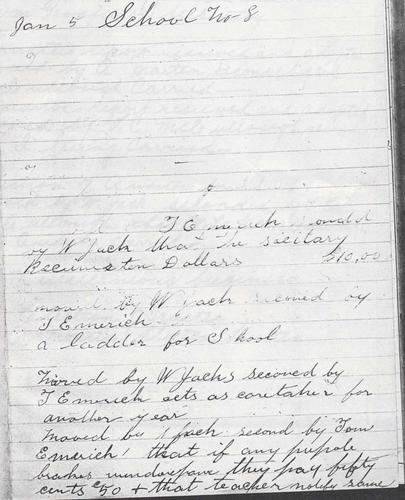 Jan 5 School No 8
T Emerich
by W Jach that the secitary
Recieves ten Dollars $10,00
moved by W Jach seconed by
T Emerich
a ladder for School
Moved by W Jachs seconed by
T Emerich acts as caretaker for
another year
Moved by Jach second by Tom
Emerich that if any pupole
brakes window pane they pay fifty
cents 50 + that teacher notify same